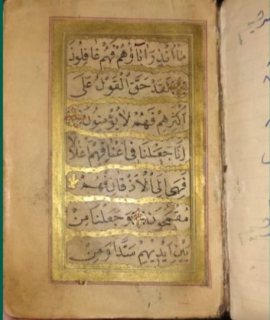 مَا أُنْذِرَ آبَاؤُهُمْ فَهُمْ غَافِلُونَ
لَقَدْ حَقَّ الْقَوْلُ عَلَى
أَكْثَرِهِمْ فَهُمْ لَا يُؤْمِنُونَ
إِنَّا جَعَلْنَا فِي أَعْنَاقِهِمْ أَغْلَالًا
فَهِيَ إِلَى الْأَذْقَانِ فَهُمْ
مُقْمَحُونَ وَجَعَلْنَا مِنْ
بَيْنِ أَيْدِيهِمْ سَدًّا وَمِنْ